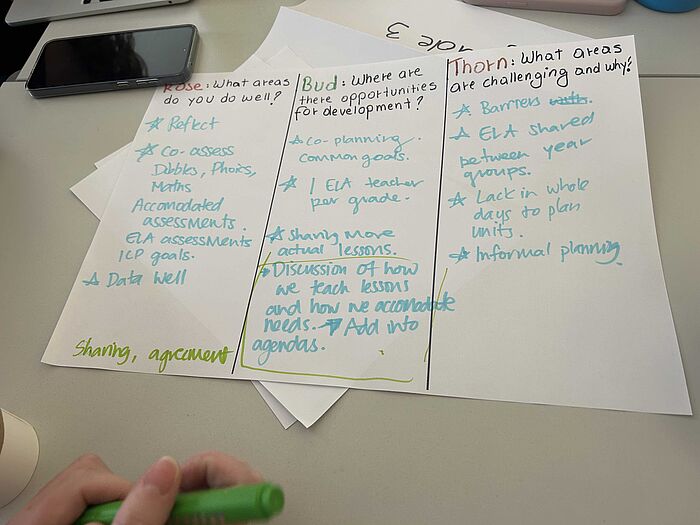 Rose: What areas
do you do well?
Reflect
Co-assess
Dibbles, Phoics,
Maths
Accomodated
assessments.
ELA assessments
ICP goals.
Data well
Sharing, agreement
Bud: Where are
there opportunities
for development?
Co-planning.
common goals.
1 ELA teacher
per grade.
Sharing more
actual lessons.
Discussion of how
we teach lessons
and how we accomodate
needs. → Add into
agendas.
Thorn: What areas
are challenging and why?
Barriers
ELA shared
between year
groups.
Lack in whole
days to plan
units.
Informal planning.